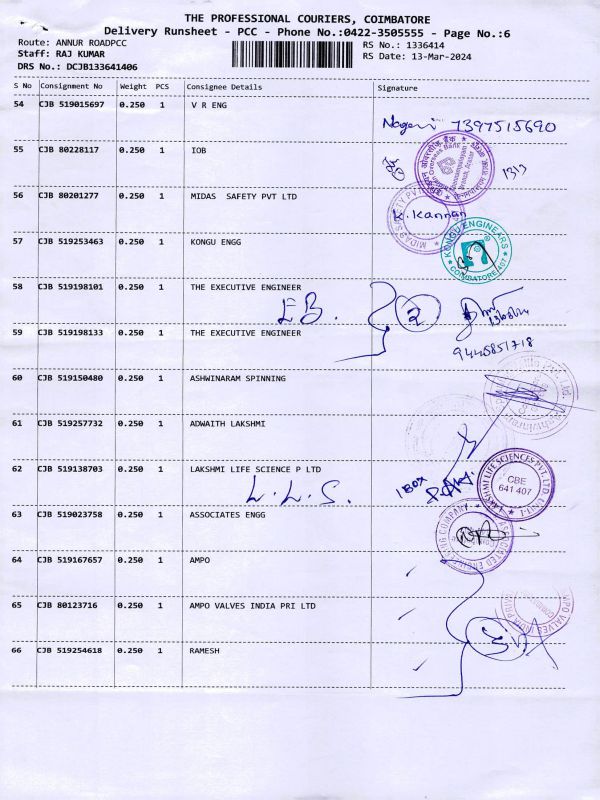 THE PROFESSIONAL COURIERS, COIMBATORE
Delivery Runsheet - PCC - Phone No.:0422-3505555 - Page No.:6
Route: ANNUR ROADPCC
Staff: RAJ KUMAR
DRS No.: DCJB133641406
RS No.: 1336414
RS Date: 13-Mar-2024
S No Consignment No Weight PCS Consignee Details Signature
54 CJB 519015697 0.250 1 V R ENG
7397515690
55 CJB 80228117 0.250 1 IOB
Overseas Bank
1313
56 CJB 80201277 0.250 1 MIDAS SAFETY PVT LTD
MIDAS SAFETY PVT
K. Kannan
57 CJB 519253463 0.250 1 KONGU ENGG
KONGU ENGINEARS
COIMBATORE
58 CJB 519198101 0.250 1 THE EXECUTIVE ENGINEER
EB.
2
59 CJB 519198133 0.250 1 THE EXECUTIVE ENGINEER
9445851718
60 CJB 519150480 0.250 1 ASHWINARAM SPINNING
61 CJB 519257732 0.250 1 ADWAITH LAKSHMI
62 CJB 519138703 0.250 1 LAKSHMI LIFE SCIENCE P LTD
L.L.S.
1 BOX
LAKSHMI LIFE SCIENCES PVT. LTD.
CBE
641 407
63 CJB 519023758 0.250 1 ASSOCIATES ENGG
ASSOCIATED ENGINEERING COMPANY
64 CJB 519167657 0.250 1 AMPO
65 CJB 80123716 0.250 1 AMPO VALVES INDIA PRI LTD
AMPO VALVES INDIA PRIVA
66 CJB 519254618 0.250 1 RAMESH